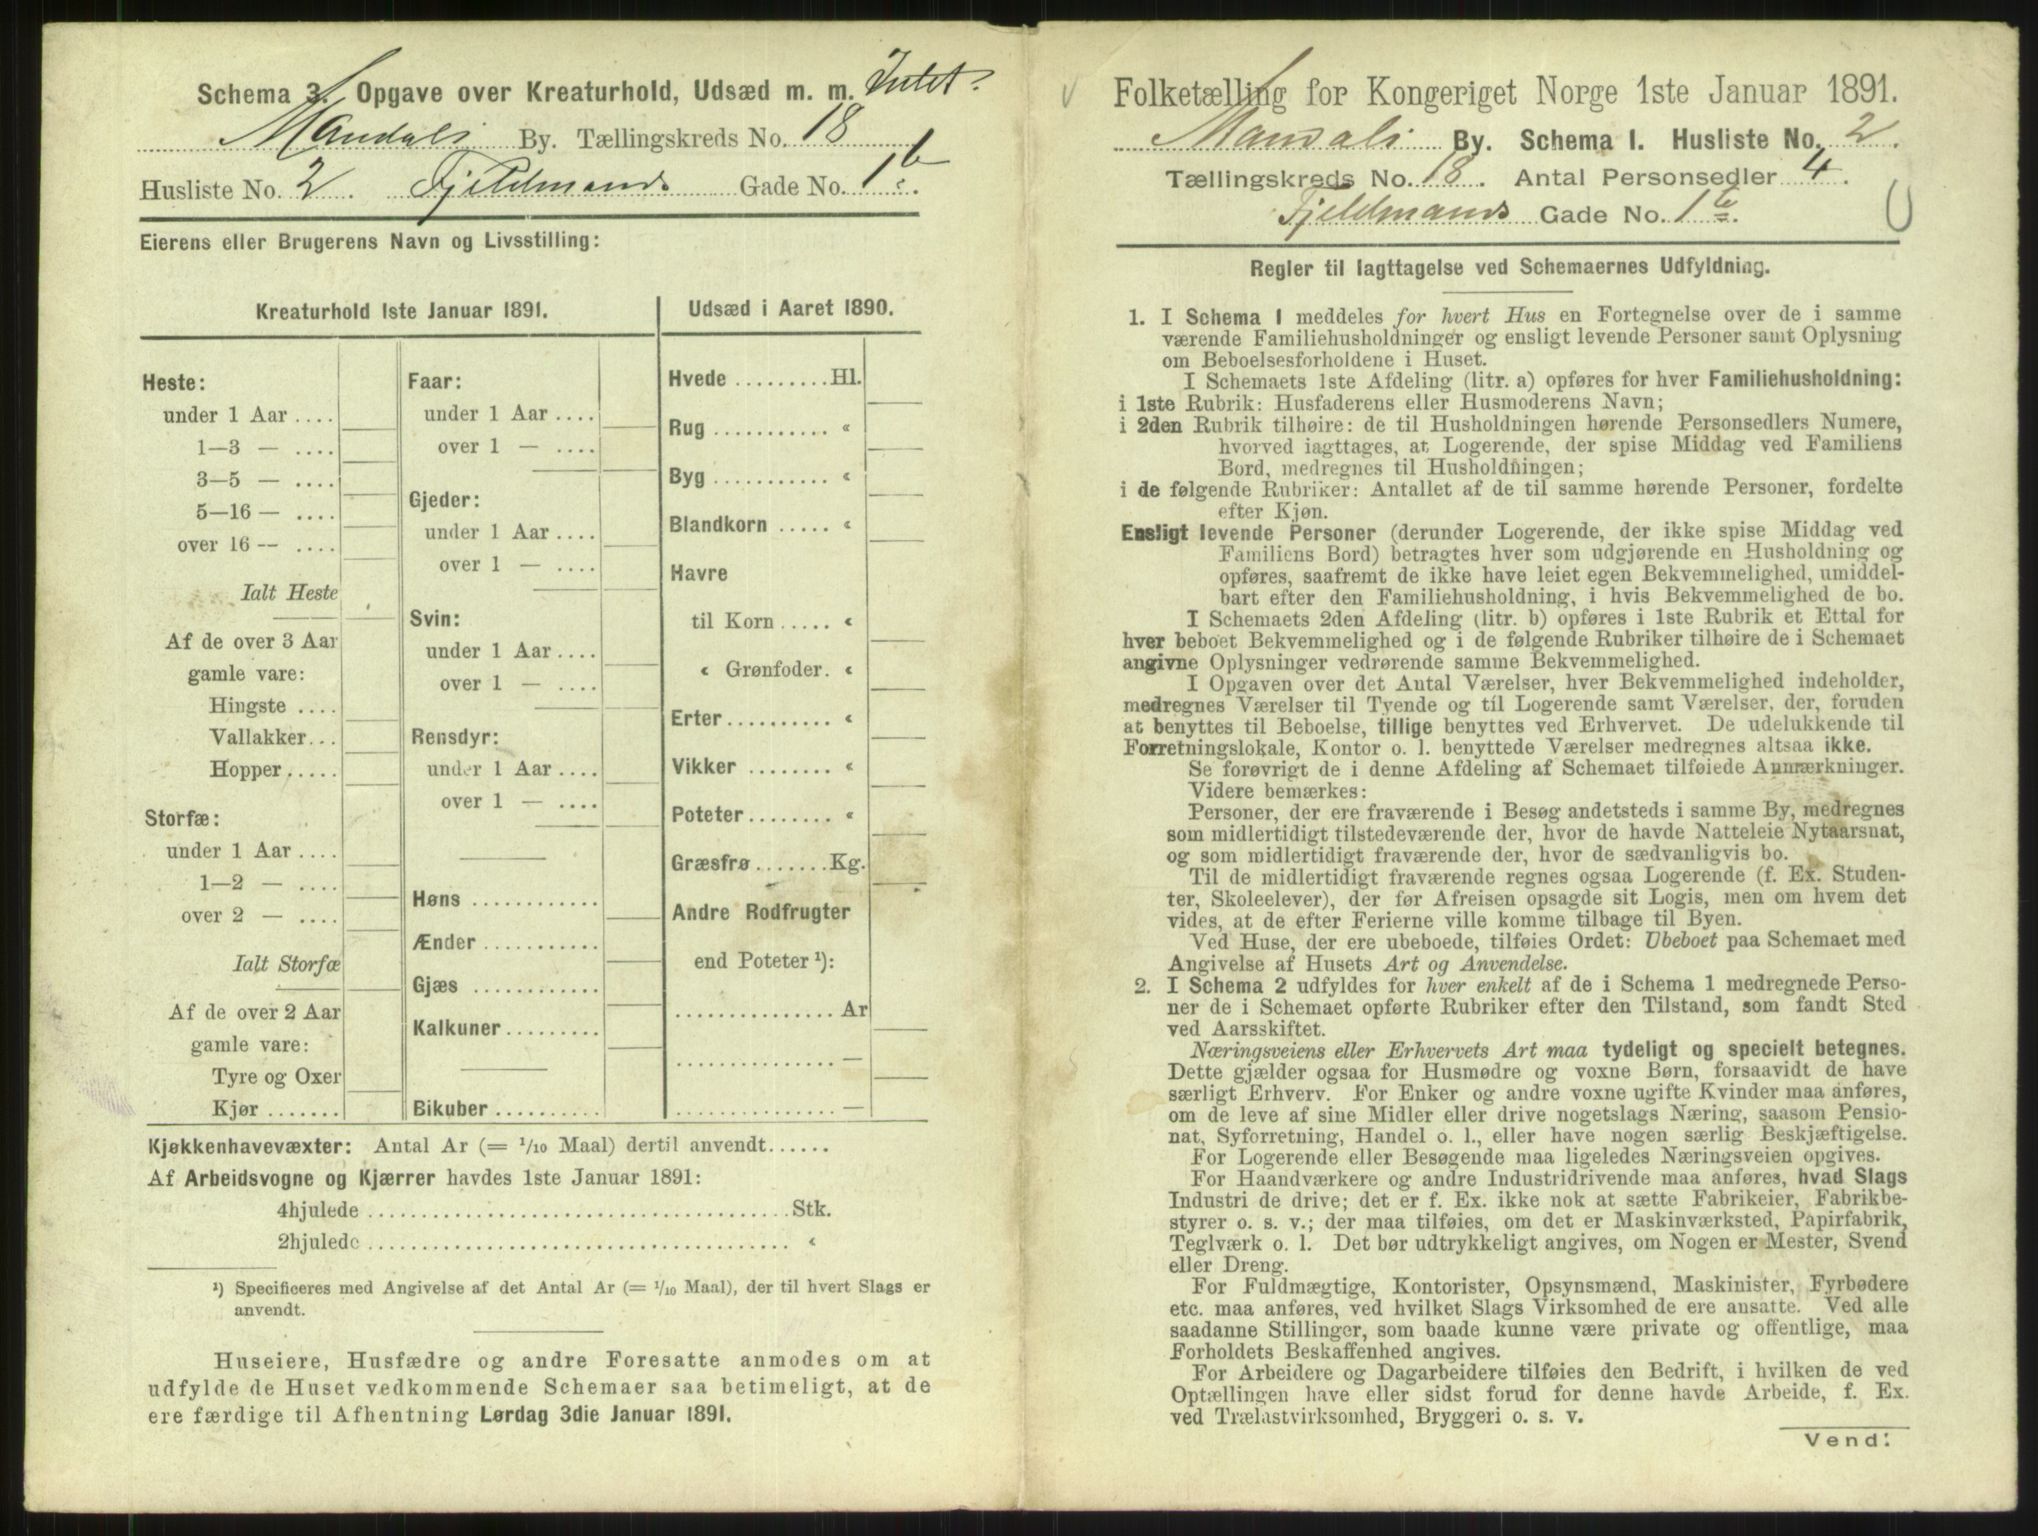 Schema 3. Opgave over Kreaturhold, Udsæd m. m. Intet.
Mandals By. Tællingskreds No. 18
Husliste No. 2. Fjeldmands Gade No. 1b.
Eierens eller Brugerens Navn og Livsstilling:
Kreaturhold 1ste Januar 1891.
Heste:
under 1 Aar ....
1—3 — ....
3—5 — ....
5—16 — ....
over 16 — ....
Ialt Heste
Af de over 3 Aar
gamle vare:
Hingste ....
Vallakker...
Hopper.....
Storfæ:
under 1 Aar ....
1—2 — ....
over 2 — ....
Ialt Storfæ
Af de over 2 Aar
gamle vare:
Tyre og Oxer
Kjør .......
Faar:
under 1 Aar ....
over 1 — ....
Gjeder:
under 1 Aar ....
over 1 — ....
Svin:
under 1 Aar ....
over 1 — ....
Rensdyr:
under 1 Aar ....
over 1 — ....
Høns ............
Ænder ...........
Gjæs ............
Kalkuner.........
Bikuber ..........
Udsæd i Aaret 1890.
Hvede .........Hl.
Rug ........... «
Byg ........... «
Blandkorn ..... «
Havre
til Korn ..... «
« Grønfoder. «
Erter.......... «
Vikker ........ «
Poteter........ «
Græsfrø .......Kg.
Andre Rodfrugter
end Poteter ¹):
............... Ar
............... —
............... —
Kjøkkenhavevæxter: Antal Ar (= 1/10 Maal) dertil anvendt......
Af Arbeidsvogne og Kjærrer havdes 1ste Januar 1891:
4hjulede ........................................ Stk.
2hjulede ........................................ «
¹) Specificeres med Angivelse af det Antal Ar (= 1/10 Maal), der til hvert Slags er
anvendt.
Huseiere, Husfædre og andre Foresatte anmodes om at
udfylde de Huset vedkommende Schemaer saa betimeligt, at de
ere færdige til Afhentning Lørdag 3die Januar 1891.
Folketælling for Kongeriget Norge 1ste Januar 1891.
Mandals By. Schema 1. Husliste No. 2.
Tællingskreds No. 18. Antal Personsedler 4.
Fjeldmands Gade No. 1b.
Regler til Iagttagelse ved Schemaernes Udfyldning.
1. I Schema 1 meddeles for hvert Hus en Fortegnelse over de i samme
værende Familiehusholdninger og ensligt levende Personer samt Oplysning
om Beboelsesforholdene i Huset.
I Schemaets 1ste Afdeling (litr. a) opføres for hver Familiehusholdning:
i 1ste Rubrik: Husfaderens eller Husmoderens Navn;
i 2den Rubrik tilhøire: de til Husholdningen hørende Personsedlers Numere,
hvorved iagttages, at Logerende, der spise Middag ved Familiens
Bord, medregnes til Husholdningen;
i de følgende Rubriker: Antallet af de til samme hørende Personer, fordelte
efter Kjøn.
Ensligt levende Personer (derunder Logerende, der ikke spise Middag ved
Familiens Bord) betragtes hver som udgjørende en Husholdning og
opføres, saafremt de ikke have leiet egen Bekvemmelighed, umiddel-
bart efter den Familiehusholdning, i hvis Bekvemmelighed de bo.
I Schemaets 2den Afdeling (litr. b) opføres i 1ste Rubrik et Ettal for
hver beboet Bekvemmelighed og i de følgende Rubriker tilhøire de i Schemaet
angivne Oplysninger vedrørende samme Bekvemmelighed.
I Opgaven over det Antal Værelser, hver Bekvemmelighed indeholder,
medregnes Værelser til Tyende og til Logerende samt Værelser, der, foruden
at benyttes til Beboelse, tillige benyttes ved Erhvervet. De udelukkende til
Forretningslokale, Kontor o. l. benyttede Værelser medregnes altsaa ikke.
Se forøvrigt de i denne Afdeling af Schemaet tilføiede Anmærkninger.
Videre bemærkes:
Personer, der ere fraværende i Besøg andetsteds i samme By, medregnes
som midlertidigt tilstedeværende der, hvor de havde Natteleie Nytaarsnat,
og som midlertidigt fraværende der, hvor de sædvanligvis bo.
Til de midlertidigt fraværende regnes ogsaa Logerende (f. Ex. Studen-
ter, Skoleelever), der før Afreisen opsagde sit Logis, men om hvem det
vides, at de efter Ferierne ville komme tilbage til Byen.
Ved Huse, der ere ubeboede, tilføies Ordet: Ubeboet paa Schemaet med
Angivelse af Husets Art og Anvendelse.
2. I Schema 2 udfyldes for hver enkelt af de i Schema 1 medregnede Perso-
ner de i Schemaet opførte Rubriker efter den Tilstand, som fandt Sted
ved Aarsskiftet.
Næringsveiens eller Erhvervets Art maa tydeligt og specielt betegnes.
Dette gjælder ogsaa for Husmødre og voxne Børn, forsaavidt de have
særligt Erhverv. For Enker og andre voxne ugifte Kvinder maa anføres,
om de leve af sine Midler eller drive nogetslags Næring, saasom Pensio-
nat, Syforretning, Handel o. l., eller have nogen særlig Beskjæftigelse.
For Logerende eller Besøgende maa ligeledes Næringsveien opgives.
For Haandværkere og andre Industridrivende maa anføres, hvad Slags
Industri de drive; det er f. Ex. ikke nok at sætte Fabrikeier, Fabrikbe-
styrer o. s. v.; der maa tilføies, om det er Maskinværksted, Papirfabrik,
Teglværk o. l. Det bør udtrykkeligt angives, om Nogen er Mester, Svend
eller Dreng.
For Fuldmægtige, Kontorister, Opsynsmænd, Maskinister, Fyrbødere
etc. maa anføres, ved hvilket Slags Virksomhed de ere ansatte. Ved alle
saadanne Stillinger, som baade kunne være private og offentlige, maa
Forholdets Beskaffenhed angives.
For Arbeidere og Dagarbeidere tilføies den Bedrift, i hvilken de ved
Optællingen have eller sidst forud for denne havde Arbeide, f. Ex.
ved Trælastvirksomhed, Bryggeri o. s. v.
Vend: